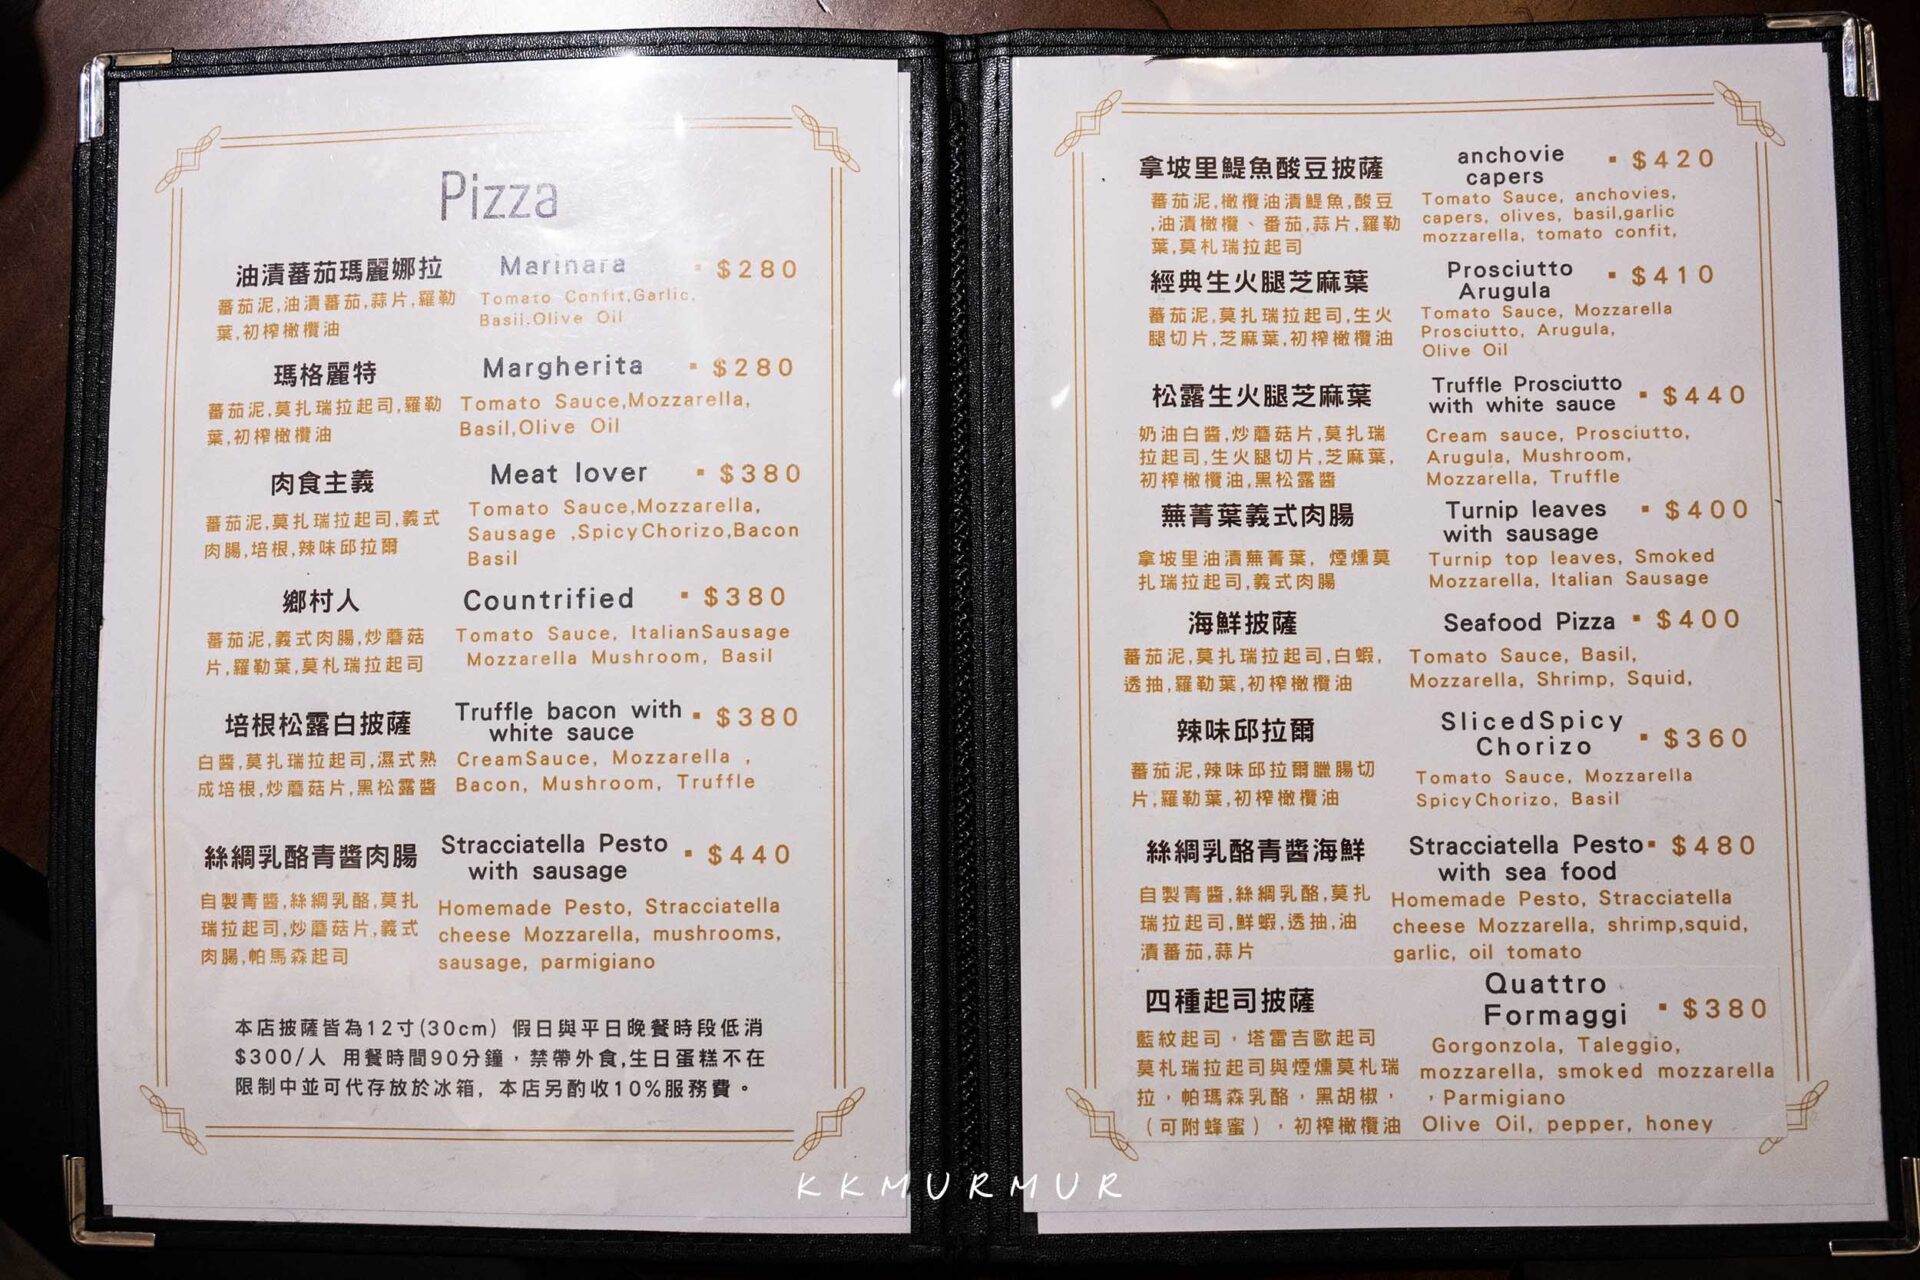 Pizza
油漬蕃茄瑪麗娜拉 Marinara ▪ $280
蕃茄泥,油漬蕃茄,蒜片,羅勒 Tomato Confit,Garlic,
葉,初榨橄欖油 Basil.Olive Oil
瑪格麗特 Margherita ▪ $280
蕃茄泥,莫扎瑞拉起司,羅勒 Tomato Sauce,Mozzarella,
葉,初榨橄欖油 Basil,Olive Oil
肉食主義 Meat lover ▪ $380
蕃茄泥,莫扎瑞拉起司,義式 Tomato Sauce,Mozzarella,
肉腸,培根,辣味邱拉爾 Sausage ,SpicyChorizo,Bacon
Basil
鄉村人 Countrified ▪ $380
蕃茄泥,義式肉腸,炒蘑菇 Tomato Sauce, ItalianSausage
片,羅勒葉,莫札瑞拉起司 Mozzarella Mushroom, Basil
培根松露白披薩 Truffle bacon with ▪ $380
white sauce
白醬,莫扎瑞拉起司,濕式熟 CreamSauce, Mozzarella ,
成培根,炒蘑菇片,黑松露醬 Bacon, Mushroom, Truffle
絲綢乳酪青醬肉腸 Stracciatella Pesto ▪ $440
with sausage
自製青醬,絲綢乳酪,莫扎 Homemade Pesto, Stracciatella
瑞拉起司,炒蘑菇片,義式 cheese Mozzarella, mushrooms,
肉腸,帕馬森起司 sausage, parmigiano
本店披薩皆為12寸(30cm) 假日與平日晚餐時段低消
$300/人 用餐時間90分鐘，禁帶外食,生日蛋糕不在
限制中並可代存放於冰箱, 本店另酌收10%服務費。
拿坡里鯷魚酸豆披薩 anchovie ▪ $420
capers
蕃茄泥,橄欖油漬鯷魚,酸豆 Tomato Sauce, anchovies,
,油漬橄欖、番茄,蒜片,羅勒 capers, olives, basil,garlic
葉,莫札瑞拉起司 mozzarella, tomato confit,
經典生火腿芝麻葉 Prosciutto ▪ $410
Arugula
蕃茄泥,莫扎瑞拉起司,生火 Tomato Sauce, Mozzarella
腿切片,芝麻葉,初榨橄欖油 Prosciutto, Arugula,
Olive Oil
松露生火腿芝麻葉 Truffle Prosciutto ▪ $440
with white sauce
奶油白醬,炒蘑菇片,莫扎瑞 Cream sauce, Prosciutto,
拉起司,生火腿切片,芝麻葉, Arugula, Mushroom,
初榨橄欖油,黑松露醬 Mozzarella, Truffle
蕪菁葉義式肉腸 Turnip leaves ▪ $400
with sausage
拿坡里油漬蕪菁葉, 煙燻莫 Turnip top leaves, Smoked
扎瑞拉起司,義式肉腸 Mozzarella, Italian Sausage
海鮮披薩 Seafood Pizza ▪ $400
蕃茄泥,莫扎瑞拉起司,白蝦, Tomato Sauce, Basil,
透抽,羅勒葉,初榨橄欖油 Mozzarella, Shrimp, Squid,
辣味邱拉爾 SlicedSpicy
Chorizo ▪ $360
蕃茄泥,辣味邱拉爾臘腸切 Tomato Sauce, Mozzarella
片,羅勒葉,初榨橄欖油 SpicyChorizo, Basil
絲綢乳酪青醬海鮮 Stracciatella Pesto▪ $480
with sea food
自製青醬,絲綢乳酪,莫扎 Homemade Pesto, Stracciatella
瑞拉起司,鮮蝦,透抽,油 cheese Mozzarella, shrimp,squid,
漬蕃茄,蒜片 garlic, oil tomato
四種起司披薩 Quattro
Formaggi ▪ $380
藍紋起司，塔雷吉歐起司 Gorgonzola, Taleggio,
莫札瑞拉起司與煙燻莫札瑞 mozzarella, smoked mozzarella
拉，帕瑪森乳酪，黑胡椒， ，Parmigiano
（可附蜂蜜），初榨橄欖油 Olive Oil, pepper, honey
KKMURMUR